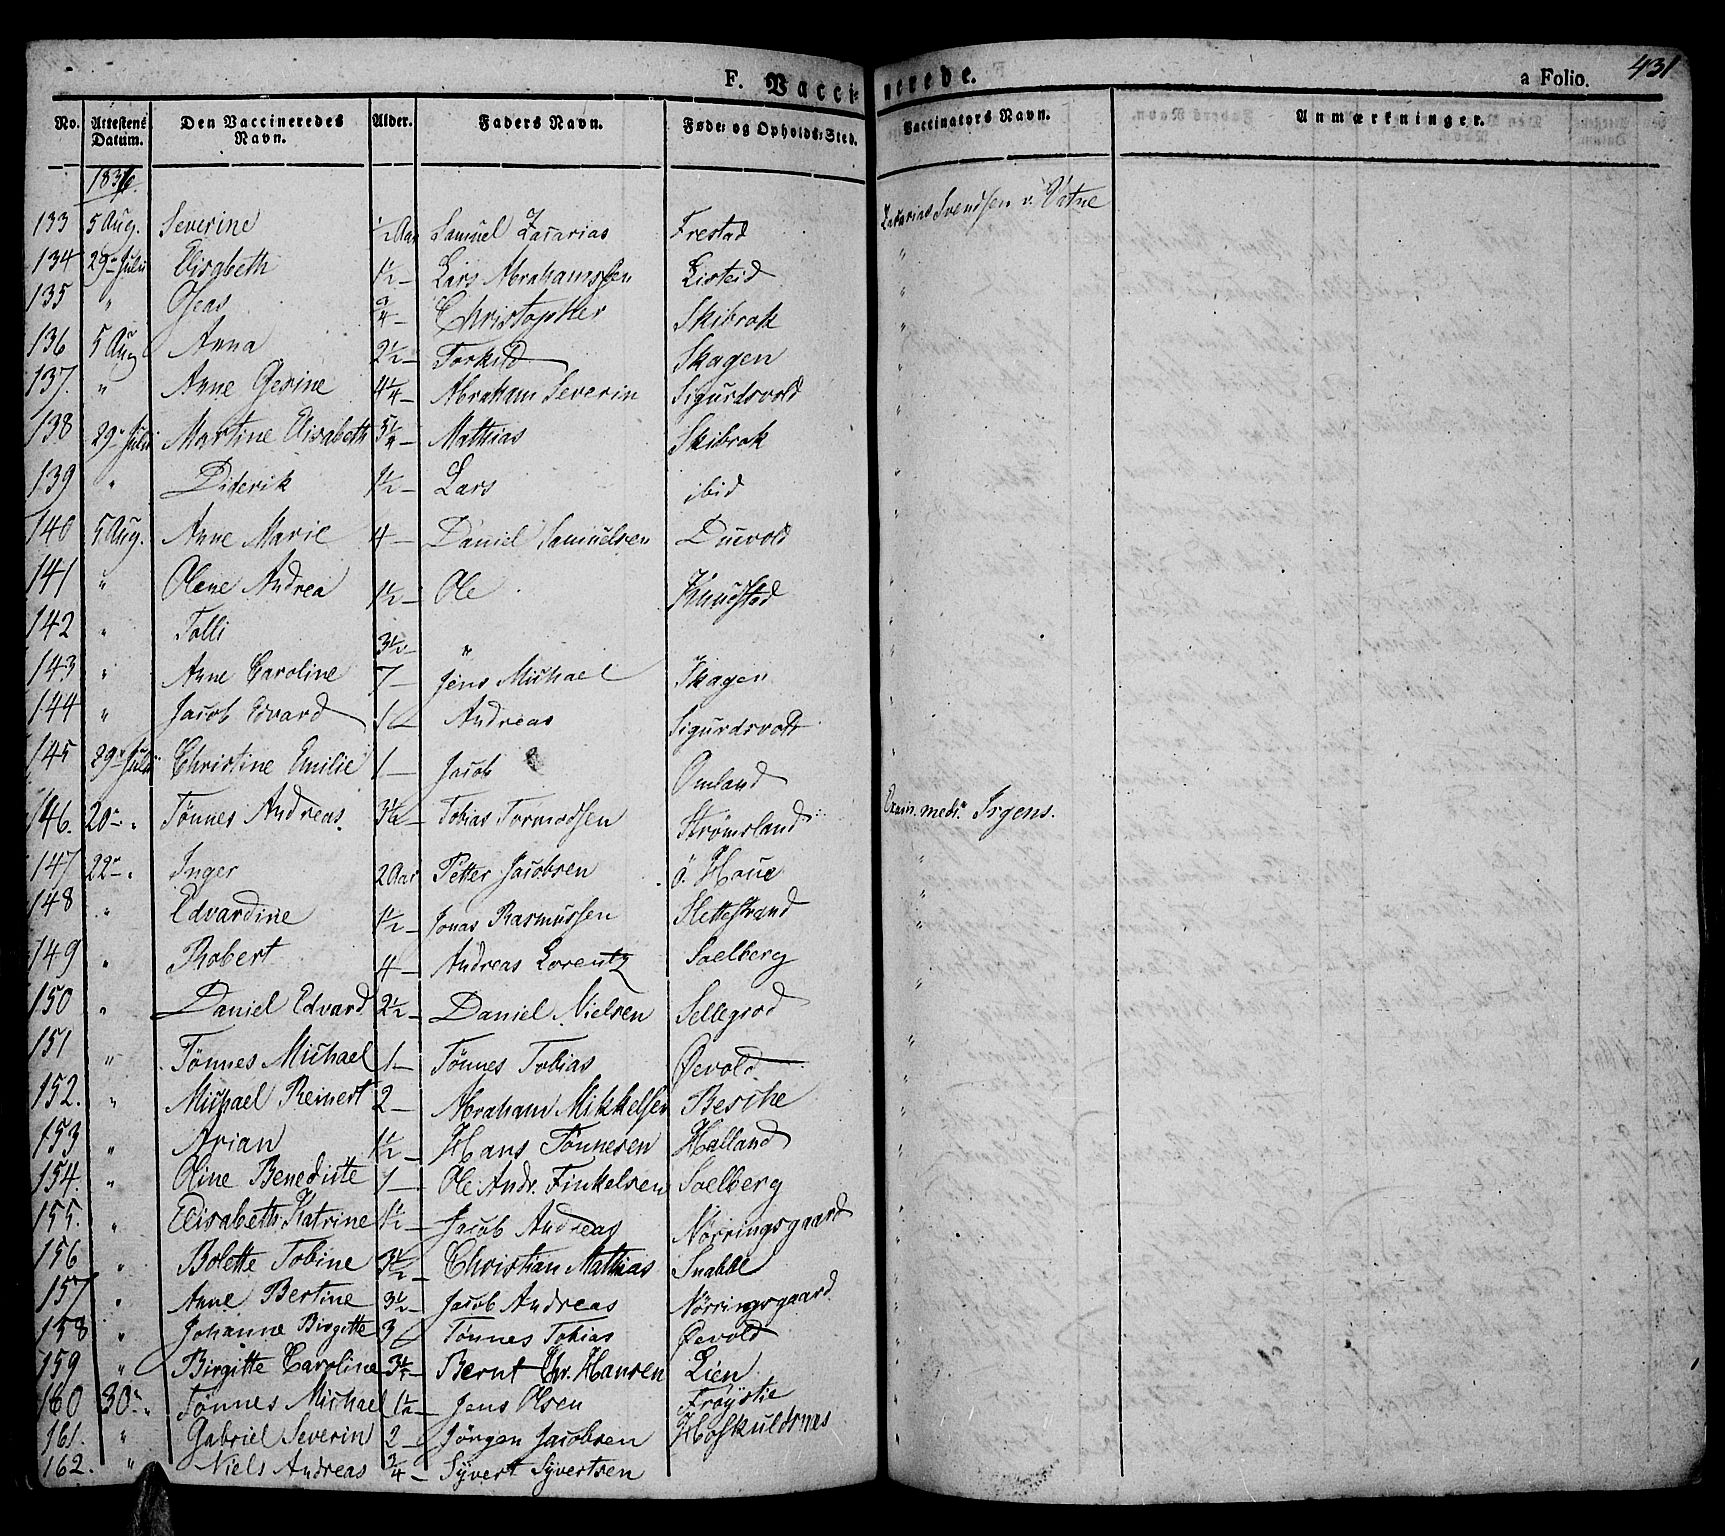 F. Vaccinerede. a Folio. 431
No. Attestens Datum. Den Vaccineredes Navn. Alder. Faders Navn. Føde- og Opholds-Sted. Vaccinators Navn. Anmærkninger.
1836.
133 5 Aug. Severine 1/2 Aar Samuel Zacarias Frestad Zacarias Svendsen v. Vatne
134 29de Julii Elisabeth 1 1/2 — Lars Abrahamssen Eisteid "
135 " Oseas 9/4 — Christopher Skibrok "
136 5 Aug Anna 2 1/2 — Torkild Skagen "
137. " Anne Gesine 4 1/4 — Abraham Severin Sigurdsvold "
138 29de Julii Martine Elisabeth 5 1/4 — Mathias Skibrok "
139 " Diderik 1 1/2 — Lars ibid "
140 5 Aug. Anne Marie 4 — Daniel Samuelsen Duevold "
141 " Olene Andrea 1 1/2 — Ole Knudstad "
142 " Tolli 3 1/2 " "
143 " Anne Caroline 7 — Jens Michael Skagen "
144 " Jacob Edvard Andreas Sigurdsvold "
145 29de Julii Christine Emilie 1 — Jacob Omland "
146. 20de " Tønnes Andreas. Tobias Tormodsen Strømsland Exam. meds. Irgens.
147 22de " Inger 2 Aar Petter Jacobsen ö. Haue "
148 " Edvardine 1 1/2 — Jonas Rasmussen Slettestrand "
149 " Robert 4 — Andreas Lorentz Saelberg "
150 " Daniel Edvard 2 1/2 — Daniel Nielsen Sellegrod "
151 " Tønnes Michael 1 — Tønnes Tobias Øevold "
152. " Michael Reinert 2 — Abraham Mikkelsen Besche "
153 " Arian 1 1/2 — Hans Tønnesen Halland "
154. " Oline Benedicte 1 — Ole Andr. Finkelsen Saelberg "
155. " Elisabeth Katrine 1 1/2 — Jacob Andreas Nørringsgaard "
156 " Bolette Tobine 3 1/2 — Christian Mathias Snabbe "
157 " Anne Bertine 3 1/2 — Jacob Andreas Nørringsgaard "
158 " Johanne Birgitte 3 Tønnes Tobias Øevold "
159 " Birgitte Caroline 3 1/2 — Bernt Chr. Hansen Lien "
160 30de " Tønnes Michael 1 1/2 — Jens Olsen Frøystie "
161. " Gabriel Severin 2 — Jörgen Jacobsen Hoskuldsnes "
162. " Niels Andreas 3/4 — Syvert Syvertsen